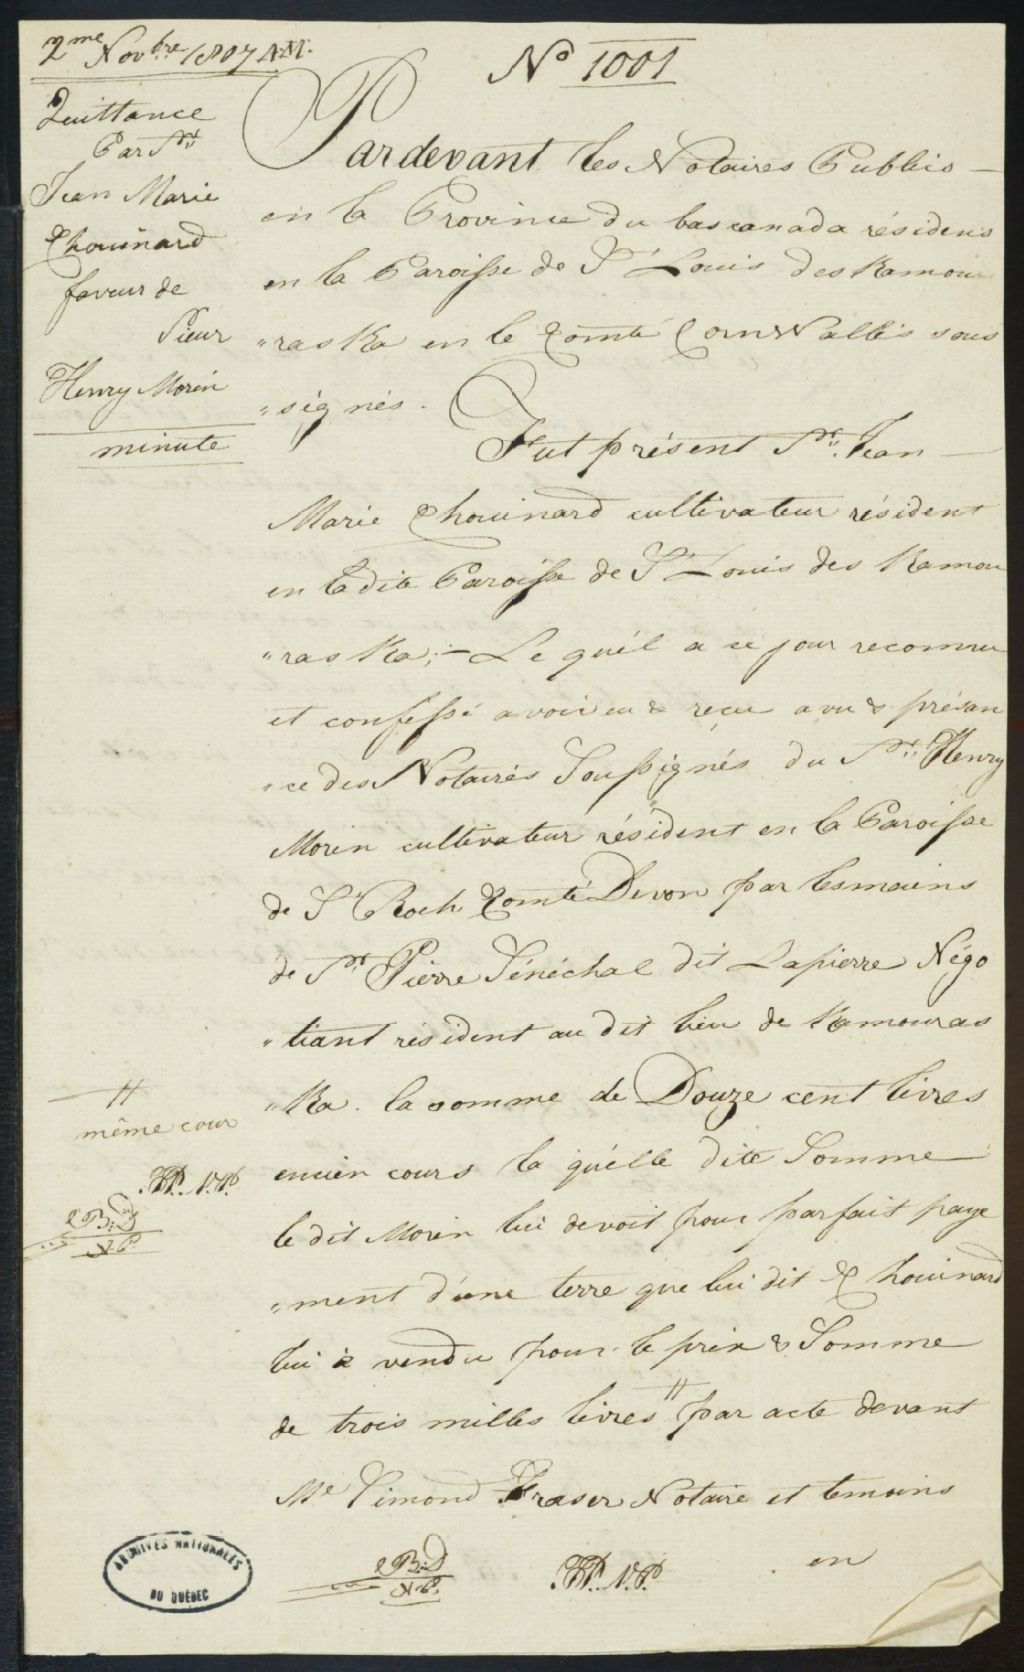 2me Novbre 1807 A.M.
Quittance
Par Sr
Jean Marie
Chouinard
faveur de
Sieur
Henry Morin
minute
No 1001
Pardevant les Notaires Publics
en la Province du bascanada résidens
en la Paroisse de St Louis des Kamou
"raska en le Comté CornWallis sous
"signés.
Fut présent Sr. Jean
Marie Chouinard cultivateur résident
en la dite Paroisse de St Louis des Kamou
"raska;- Le quél a ce jour reconnu
et confessé avoir eu & reçu a vu & présan
"ce des Notaires Soussignés du Sr. Henry
Morin cultivateur résident en la Paroisse
de St Roch Comté Devon par les mains
de Sr Pierre Sénéchal dit Lapierre Négo
"tiant résident au dit lieu de Kamouras
"Ka. la somme de Douze cent livres
encien cours la quélle dite Somme
le dit Morin lui devoit pour parfait paye
"ment d'une terre que lui dit Chouinard
lui à vendu pour le prix & Somme
de trois milles livres // par acte devant
Me Simond Fraser Notaire et temoins
en
//
même cour
N.P.
B.D
N.P.
B.D
N.P.
N.P.
ARCHIVES NATIONALES
DU QUÉBEC